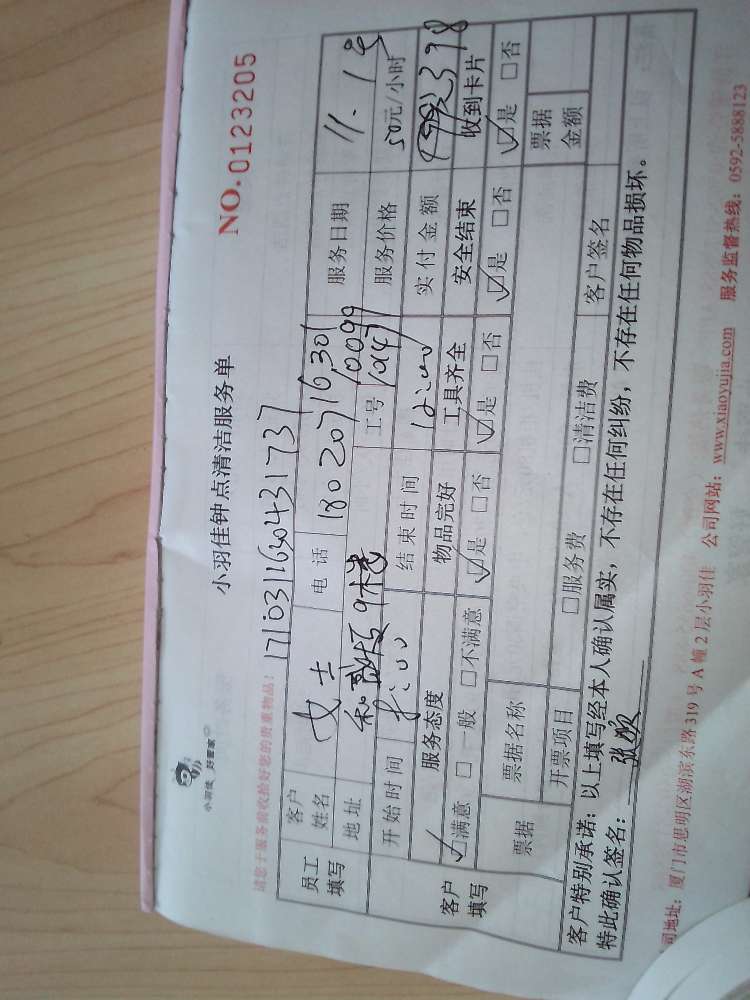 小羽佳 好管家
小羽佳钟点清洁服务单
NO.0123205
请您于服务前收拾好您的贵重物品: 1710311630431737
员工填写 客户姓名 女士 电话 18020716301 服务日期 11.1号
地址 9楼 工号 服务价格 50元/小时
开始时间 8:00 结束时间 12:00 实付金额
客户填写 服务态度 物品完好 工具齐全 安全结束 收到卡片
☑满意 □一般 □不满意 ☑是 □否 ☑是 □否 ☑是 □否 ☑是 □否
票据 票据名称 票据金额
开票项目 □服务费 □清洁费 客户签名
客户特别承诺: 以上填写经本人确认属实, 不存在任何纠纷, 不存在任何物品损坏。
特此确认签名: 张
司地址: 厦门市思明区湖滨东路319号A幢2层小羽佳 公司网站: www.xiaoyujia.com 服务监督热线: 0592-5888123